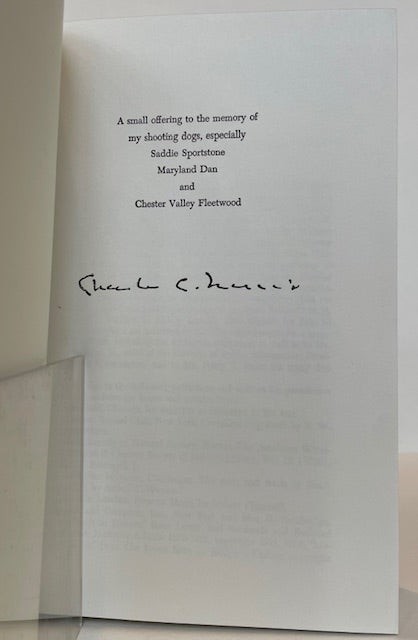 A small offering to the memory of
my shooting dogs, especially
Saddie Sportstone
Maryland Dan
and
Chester Valley Fleetwood
Charles C. Norris